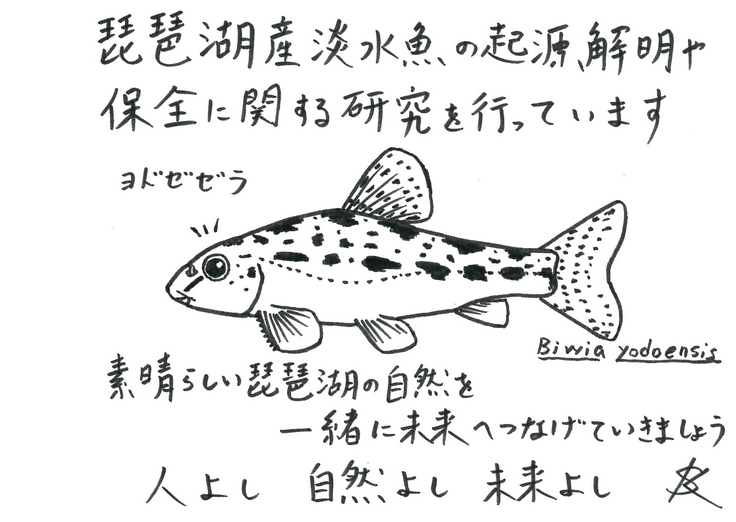 琵琶湖産淡水魚の起源解明や
保全に関する研究を行っています
ヨドゼゼラ
Biwia yodoensis
素晴らしい琵琶湖の自然を
一緒に未来へつなげていきましょう
人よし 自然よし 未来よし